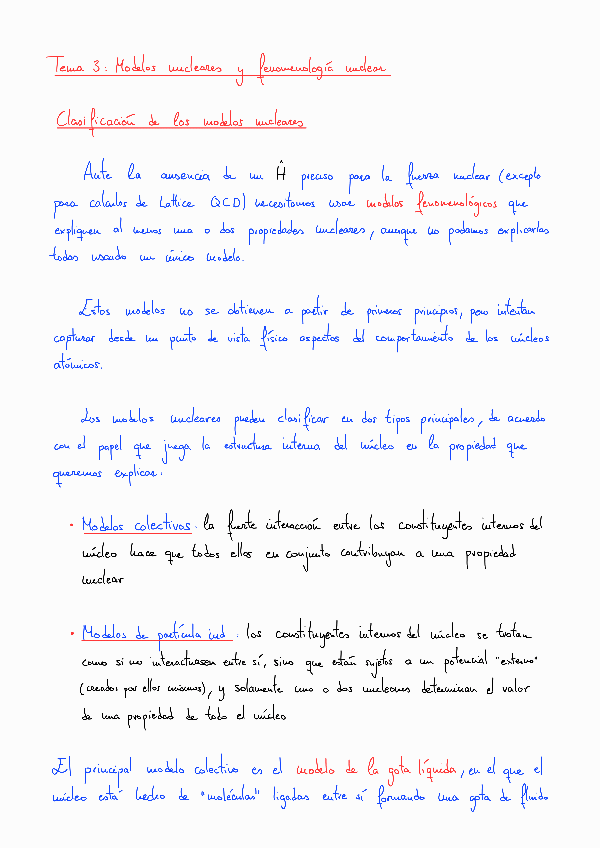 Tema 3: Modelos nucleares y fenomenología nuclear
Clasificación de los modelos nucleares
Ante la ausencia de un Ĥ preciso para la fuerza nuclear (excepto
para calculos de Lattice QCD) necesitamos usar modelos fenomenológicos que
expliquen al menos una o dos propiedades nucleares, aunque no podamos explicarlas
todas usando un único modelo.
Estos modelos no se obtienen a partir de primeros principios, pero intentan
capturar desde un punto de vista físico aspectos del comportamiento de los núcleos
atómicos.
Los modelos nucleares pueden clasificar en dos tipos principales, de acuerdo
con el papel que juega la estructura interna del núcleo en la propiedad que
queremos explicar:
• Modelos colectivos: la fuerte interacción entre los constituyentes internos del
núcleo hace que todos ellos en conjunto contribuyan a una propiedad
nuclear
• Modelos de partícula ind: los constituyentes internos del núcleo se tratan
como si no interactuasen entre sí, sino que están sujetos a un potencial "externo"
(creados por ellos mismos), y solamente uno o dos nucleones determinan el valor
de una propiedad de todo el núcleo
El principal modelo colectivo es el modelo de la gota líquida, en el que el
núcleo está hecho de "moléculas" ligadas entre sí formando una gota de fluido